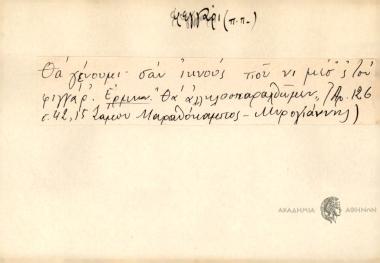 φεγγάρι (π.π.)
Θὰ γένουμι σὰν ἐκνοὺς ποὺ νι μέσ' 's τοὺ
φιγγάρ'. Ἑρμην. Θὰ ἀλληλοσπαραχθῶμεν, Ἀρ. 126
σ. 42, 15 Σάμου Μαραθόκαμπος – Μυρογιάννης)
ΑΚΑΔΗΜΙΑ ΑΘΗΝΩΝ